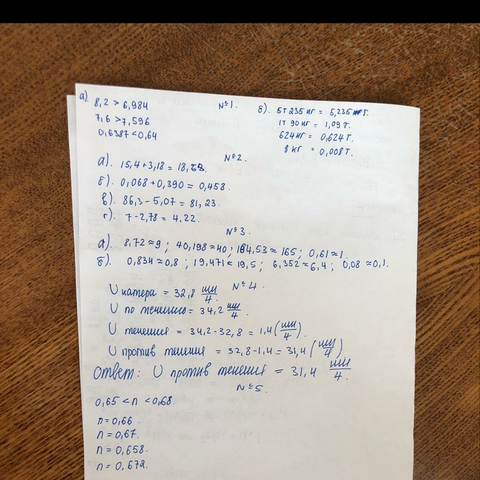 №1.
а) 8,2 > 6,984
7,6 > 7,596
0,6387 < 0,64
б). 5т 235 кг = 5,235 т.
1т 90 кг = 1,09 т.
624 кг = 0,624 т.
8 кг = 0,008 т.
№2.
а). 15,4+3,18 = 18,58.
б). 0,068+0,390 = 0,458.
в). 86,3-5,07 = 81,23.
г). 7-2,78 = 4.22.
№3.
а). 8,72≈9; 40,198≈40; 164,53≈165; 0,61≈1.
б). 0,834≈0,8; 19,471≈19,5; 6,352≈6,4; 0,08≈0,1.
№4.
U катера = 32,8 км/ч.
U по течению = 34,2 км/ч.
U течения = 34,2-32,8 = 1,4 (км/ч).
U против течения = 32,8-1,4 = 31,4 (км/ч)
Ответ: U против течения = 31,4 км/ч.
№5.
0,65 < n < 0,68.
n = 0,66
n = 0,67.
n = 0,658.
n = 0,672.